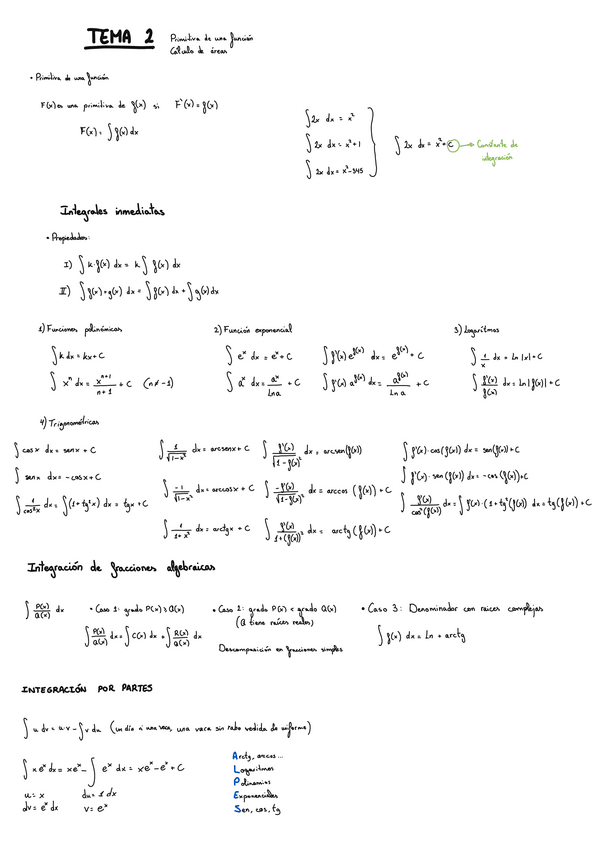 TEMA 2
Primitiva de una función
Cálculo de áreas
• Primitiva de una función
F(x) es una primitiva de f(x) si F'(x) = f(x)
F(x) = ∫ f(x) dx
∫ 2x dx = x²
∫ 2x dx = x² + 1
∫ 2x dx = x² - 345
∫ 2x dx = x² + C → Constante de integración
Integrales inmediatas
• Propiedades:
I) ∫ k·f(x) dx = k ∫ f(x) dx
II) ∫ f(x) + g(x) dx = ∫ f(x) dx + ∫ g(x) dx
1) Funciones polinómicas
∫ k dx = kx + C
∫ xⁿ dx = xⁿ⁺¹/(n+1) + C (n ≠ -1)
2) Función exponencial
∫ eˣ dx = eˣ + C
∫ f'(x) e^f(x) dx = e^f(x) + C
∫ aˣ dx = aˣ/Ln a + C
∫ f'(x) a^f(x) dx = a^f(x)/Ln a + C
3) Logaritmos
∫ 1/x dx = Ln |x| + C
∫ f'(x)/f(x) dx = Ln |f(x)| + C
4) Trigonométricas
∫ cos x dx = sen x + C
∫ sen x dx = -cos x + C
∫ 1/cos²x dx = ∫ (1 + tg²x) dx = tg x + C
∫ 1/√(1-x²) dx = arcsen x + C
∫ -1/√(1-x²) dx = arccos x + C
∫ 1/(1+x²) dx = arctg x + C
∫ f'(x)/√(1-f(x)²) dx = arcsen(f(x))
∫ -f'(x)/√(1-f(x)²) dx = arccos (f(x)) + C
∫ f'(x)/(1+(f(x))²) dx = arctg (f(x)) + C
∫ f'(x)·cos(f(x)) dx = sen(f(x)) + C
∫ f'(x)·sen(f(x)) dx = -cos (f(x)) + C
∫ f'(x)/cos²(f(x)) dx = ∫ f'(x)·(1 + tg²(f(x)) dx = tg(f(x)) + C
Integración de fracciones algebraicas
∫ P(x)/Q(x) dx
• Caso 1: grado P(x) ≥ Q(x)
∫ P(x)/Q(x) dx = ∫ C(x) dx + ∫ R(x)/Q(x) dx
• Caso 2: grado P(x) < grado Q(x)
(Q tiene raíces reales)
Descomposición en fracciones simples
• Caso 3: Denominador con raices complejas
∫ f(x) dx = Ln + arctg
INTEGRACIÓN POR PARTES
∫ u dv = u·v - ∫ v du (un día vi una vaca, una vaca sin rabo vestida de uniforme)
∫ x eˣ dx = xeˣ - ∫ eˣ dx = xeˣ - eˣ + C
u = x du = 1 dx
dv = eˣ dx v = eˣ
Arctg, arccos...
Logaritmos
Polinomios
Exponenciales
Sen, cos, tg